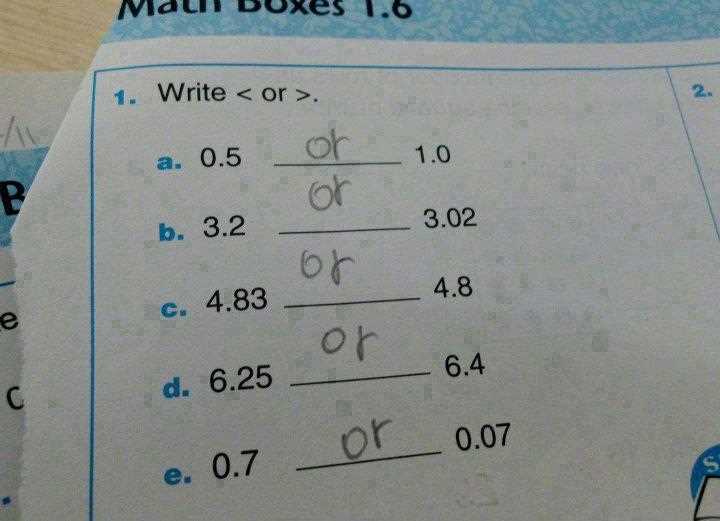 Math Boxes 1.6
1. Write < or >.
2.
a. 0.5 or 1.0
b. 3.2 or 3.02
c. 4.83 or 4.8
d. 6.25 or 6.4
e. 0.7 or 0.07
B
e